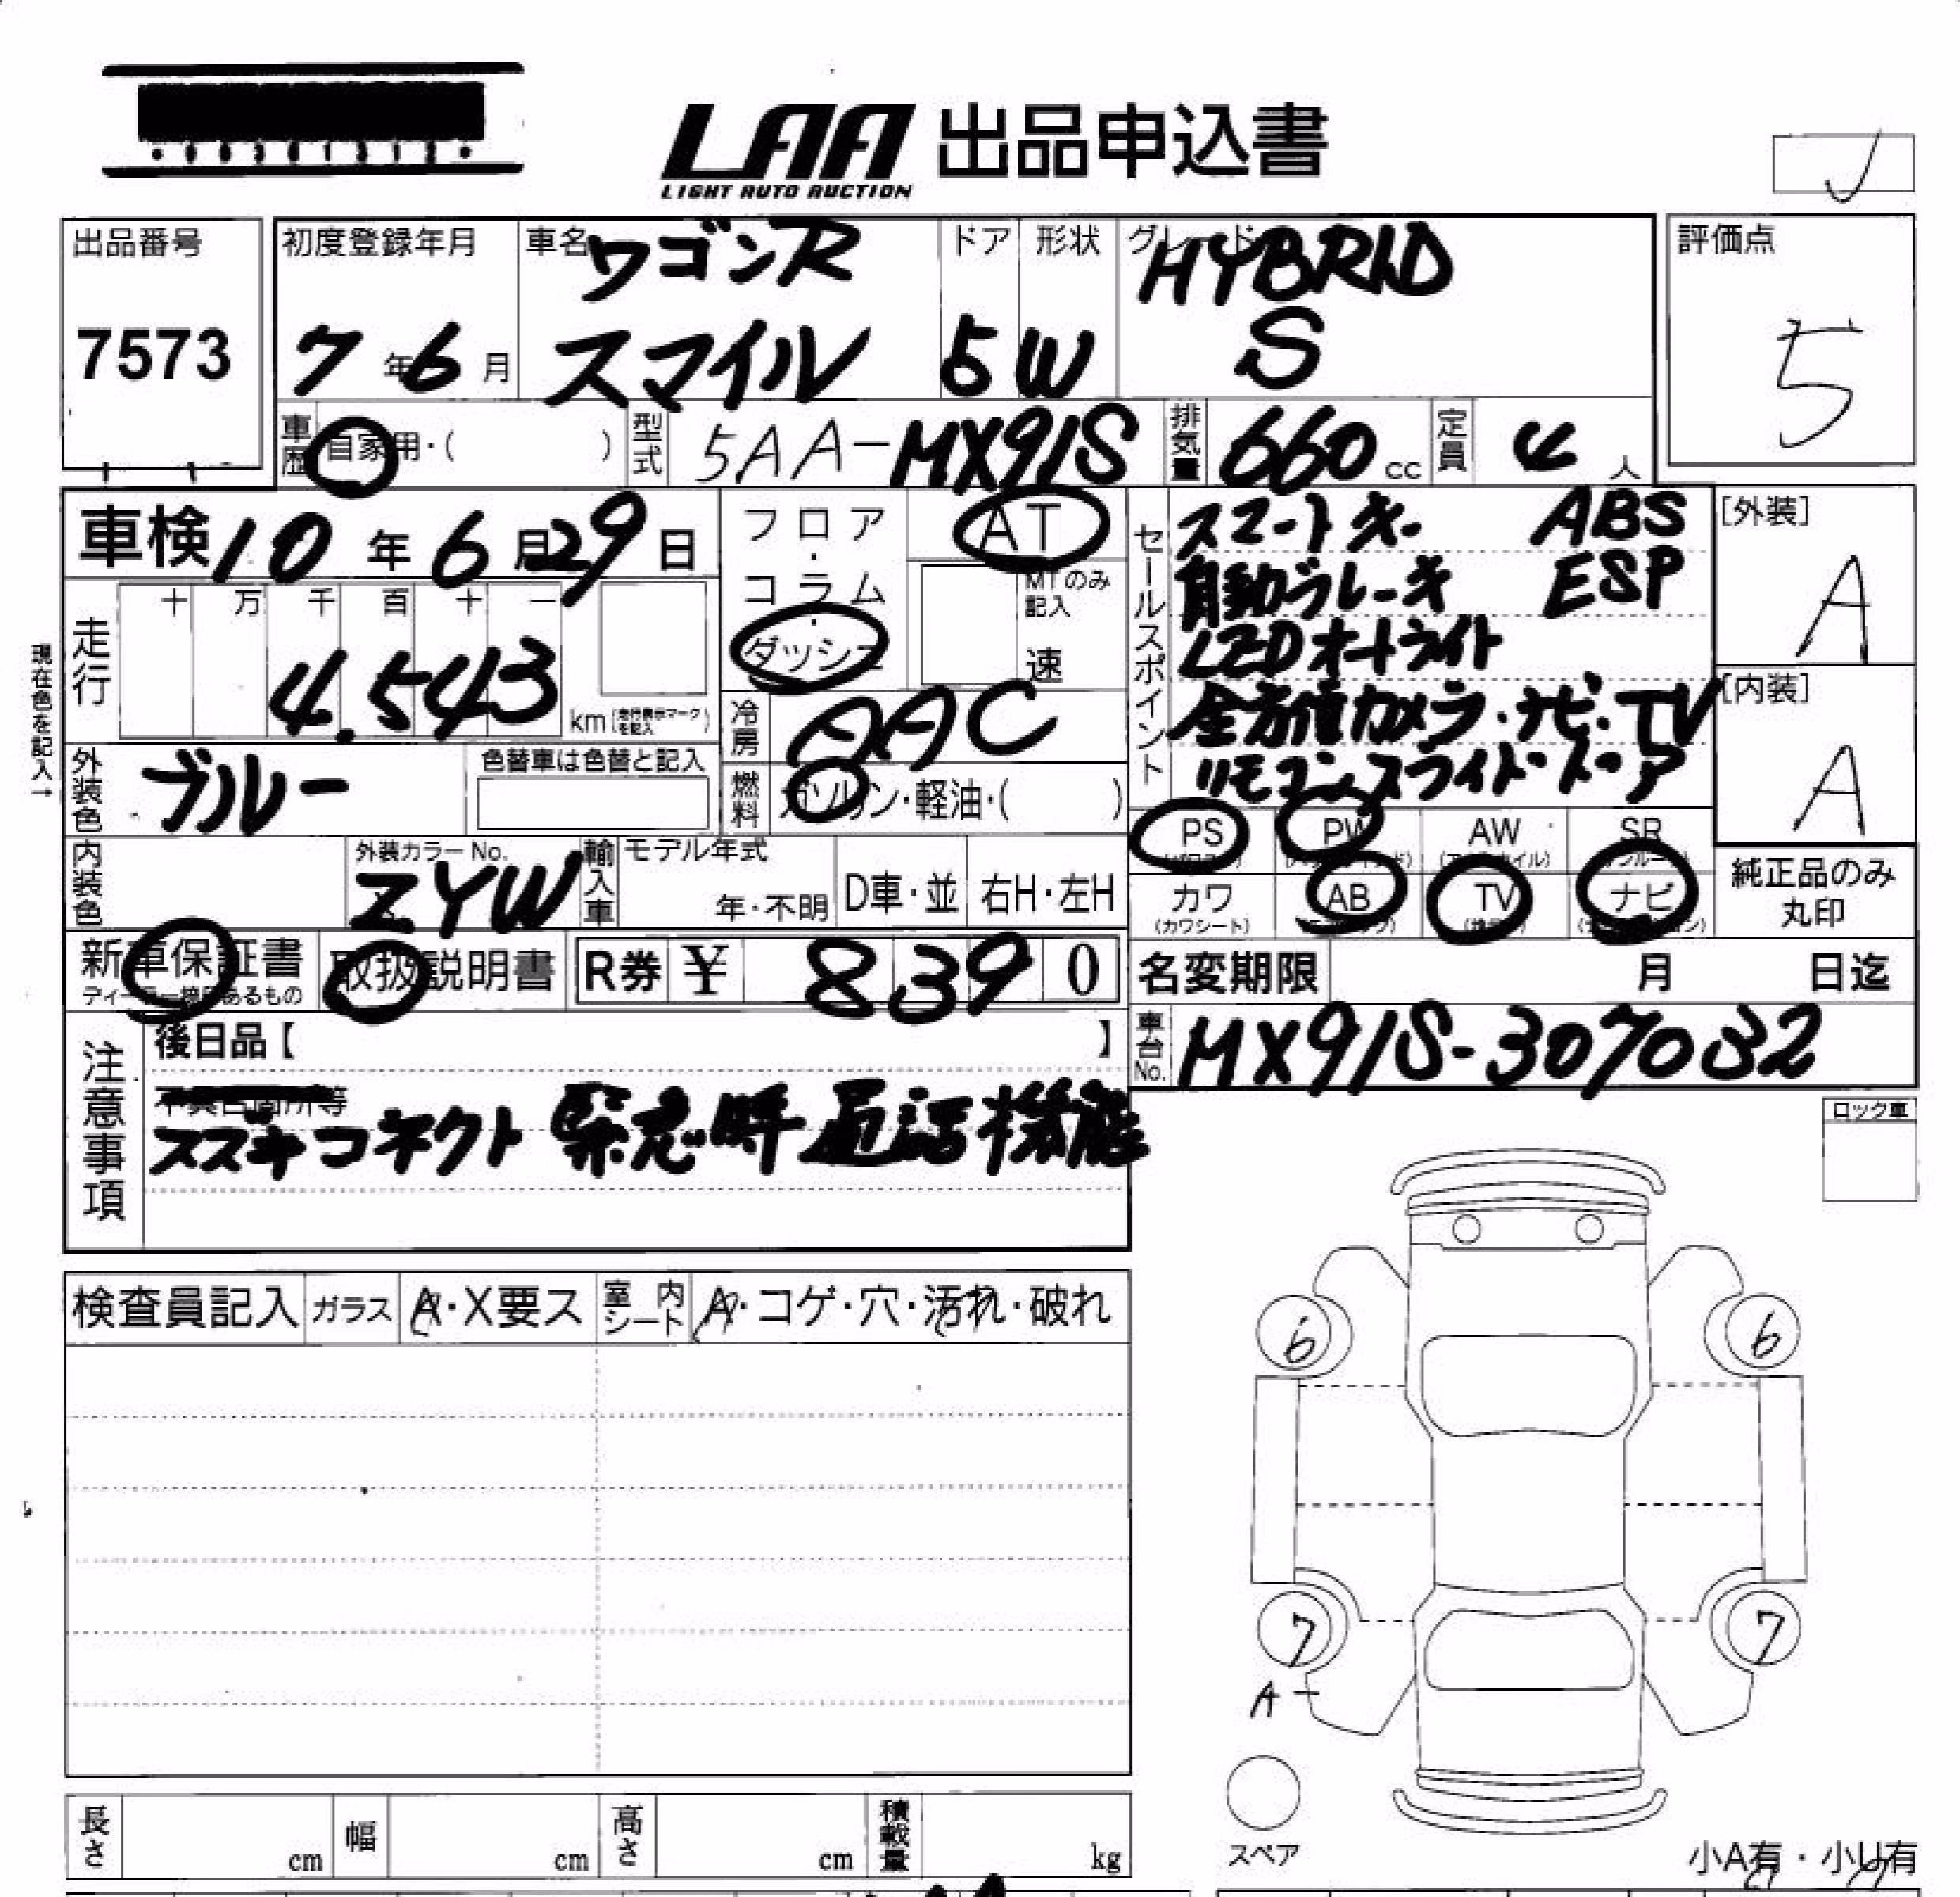 LAA 出品申込書
LIGHT AUTO AUCTION
J
出品番号
7573
初度登録年月
7年6月
車名
ワゴンR
スマイル
ドア
5
形状
W
グレード
HYBRID
S
評価点
5
車歴 自家用・( )
型式 5AA-MX91S
排気量 660cc
定員 4人
車検 10年6月29日
フロア・コラム・ダッシュ
AT
MTのみ記入
速
セールスポイント
スマートキー ABS
自動ブレーキ ESP
LEDオートライト
全方位カメラ・ナビ・TV
リモコンスライドドア
[外装]
A
[内装]
A
現在色を記入→
走行
十 万 千 百 十 一
4.543
km(走行表示マークを記入)
冷房 AAC
外装色 ブルー
色替車は色替と記入
燃料 ガソリン・軽油・( )
内装色
外装カラーNo.
ZYW
輸入車
モデル年式
年・不明
D車・並
右H・左H
PS PW AW SR
カワ AB TV ナビ
(カワシート)
純正品のみ
丸印
新車保証書
取扱説明書
R券 ¥ 8390
名変期限 月 日迄
車台No. MX91S-307032
注意事項
後日品【 】
スズキコネクト 緊急時通話機能
ロック車
検査員記入
ガラス A・X要ス
室内シート A・コゲ・穴・汚れ・破れ
6 6
7 7
A-
スペア
小A有・小U有
長さ cm
幅 cm
高さ cm
積載量 kg